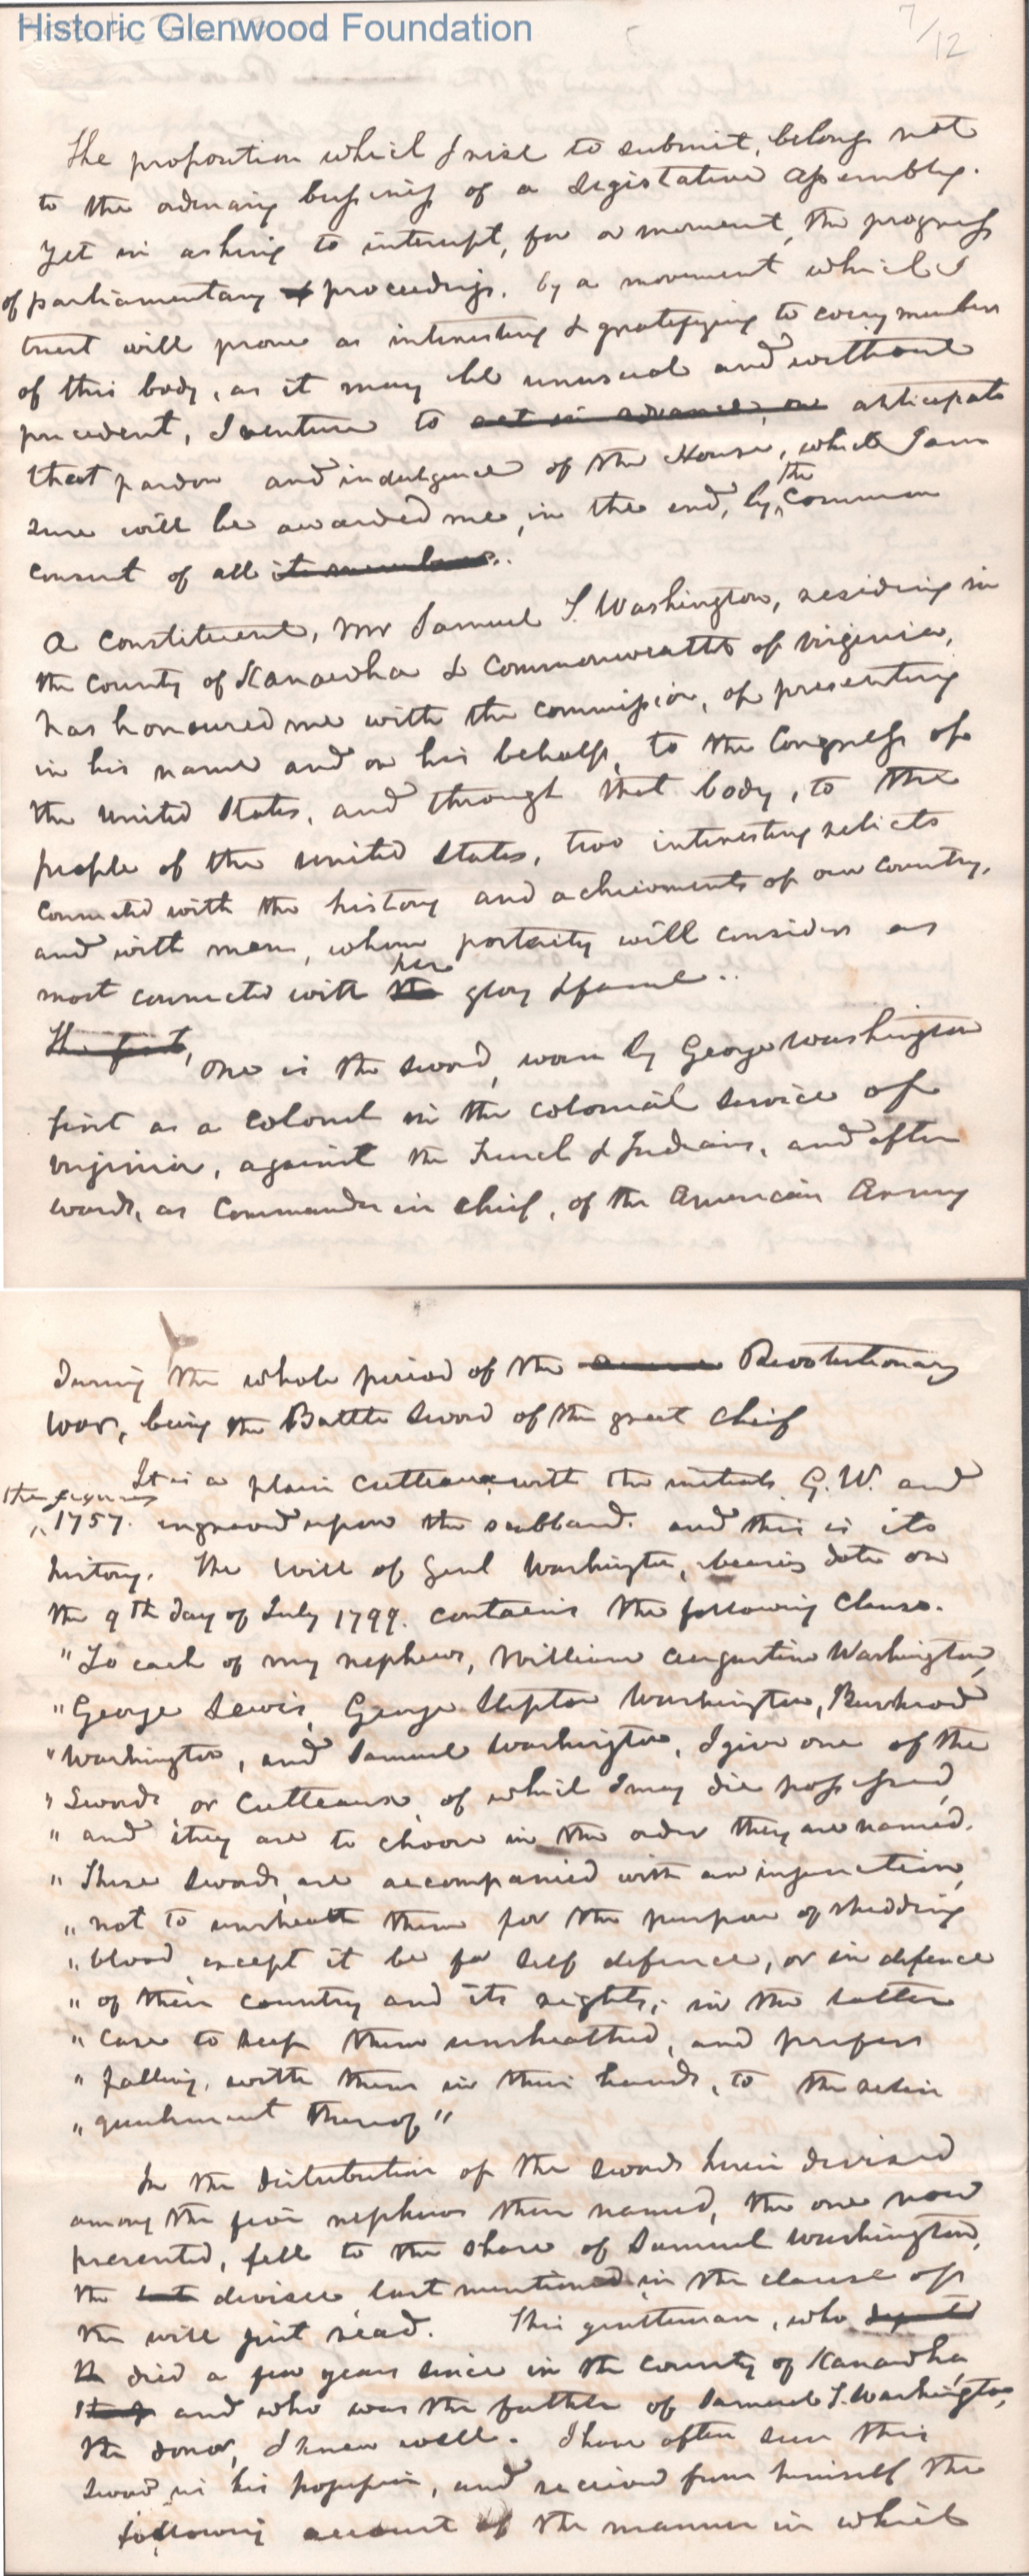 Historic Glenwood Foundation
7/12
The proposition which I rise to submit, belongs not
to the ordinary business of a Legislative Assembly.
Yet in asking to interrupt, for a moment, the progress
of parliamentary proceedings, by a movement which I
trust will prove as interesting & gratifying to every member
of this body, as it may be unusual and without
precedent, I venture to act in advance, on anticipate
that pardon and indulgence of the House, which I am
sure will be awarded me, in the end, by the common
consent of all its members.
A Constituent, Mr Samuel T. Washington, residing in
the County of Kanawha & Commonwealth of Virginia,
has honoured me with the commission, of presenting
in his name and on his behalf, to the Congress of
the United States, and through that body, to the
people of the United States, two interesting relicts
connected with the history and achievments of our country,
and with men, whom posterity will consider as
most connected with the her glory & fame..
The first, one is the sword, worn by George Washington
first as a Colonel in the Colonial Service of
Virginia, against the French & Indians, and after
wards, as Commander in Chief, of the American Army
During the whole period of the Revolutionary
War, being the Battle Sword of the great Chief
It is a plain Cutteau, with the initials G.W. and
the figures
1757. engraved upon the scabbard. and this is its
history. The Will of Genl Washington, bearing date on
the 9th day of July 1799. contains the following Clause.
"To each of my nephews, William Augustine Washington,
"George Lewis, George Stepto Washington, Bushrod
"Washington, and Samuel Washington, I give one of the
"Swords or Cutteaux, of which I may die possessed,
"and they are to choose in the order they are named.
"These Swords are accompanied with an injunction,
"not to unsheath them for the purpose of shedding
"blood except it be for self defence, or in defence
"of their country and its rights; in the latter
"case to keep them unsheathed, and prefer
"falling, with them in their hands, to the relin
"quishment thereof"
In the distribution of the swords herein devised
among the five nephews then named, the one now
presented, fell to the share of Samuel Washington,
the last devisee last mentioned in the clause of
the will just read. This gentleman, who
died a few years since in the County of Kanawha,
and who was the father of Samuel T. Washington,
the donor, I knew well. I have often seen this
sword in his possession, and received from himself the
following account of the manner in which